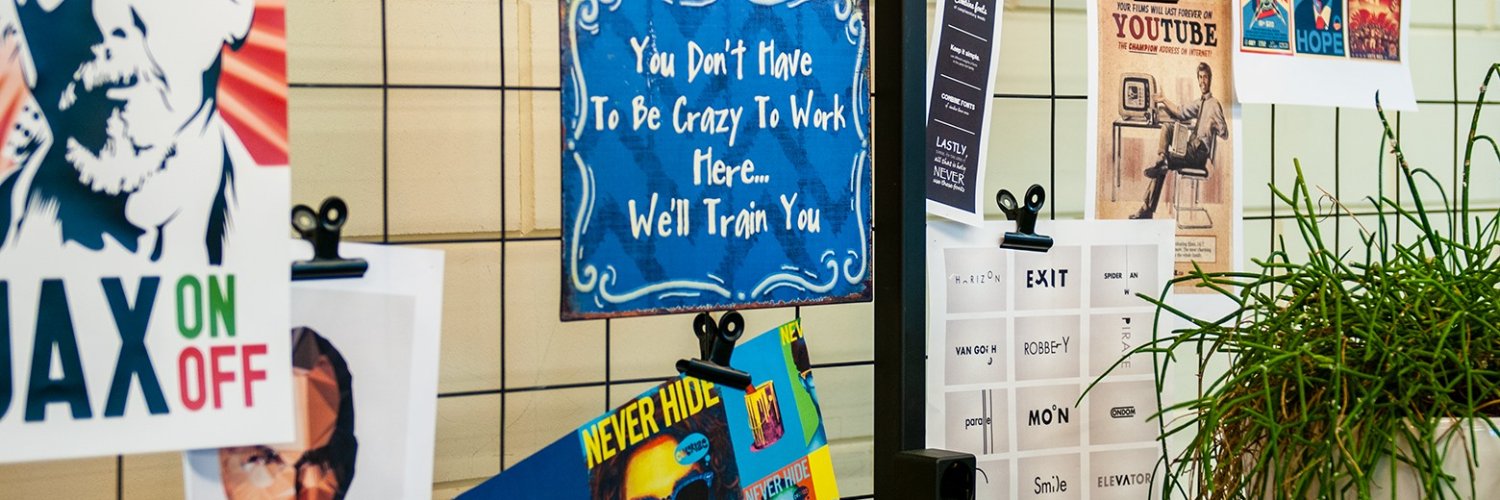 JAX
ON
OFF
You Don't Have
To Be Crazy To Work
Here...
We'll Train You
NEVER HIDE
NEVER HIDE
NEV
Keep it simple.
COMBINE FONTS
LASTLY,
all that is help
NEVER
use these fonts
YOUR FILMS WILL LAST FOREVER ON
YOUTUBE
THE CHAMPION ADDRESS ON INTERNET!
HOPE
HORIZON
EXIT
SPIDER MAN
VAN GOGH
ROBBERY
PIRATE
parallel
MOON
CONDOM
Smile
ELEVATOR